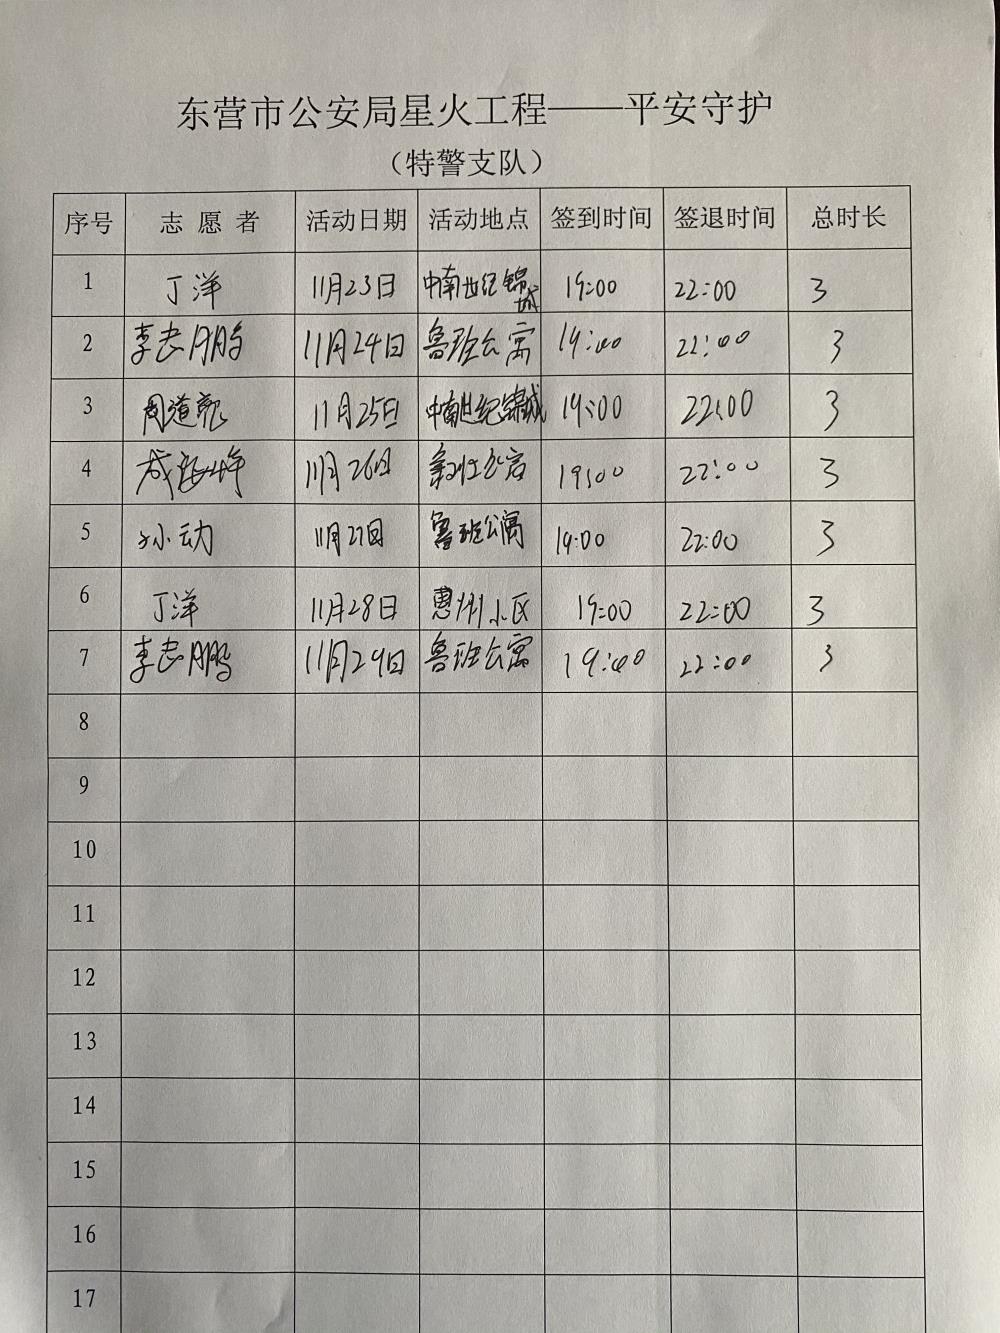 东营市公安局星火工程——平安守护
（特警支队）
序号 志愿者 活动日期 活动地点 签到时间 签退时间 总时长
1 丁洋 11月23日 中南世纪锦城 19:00 22:00 3
2 李志鹏 11月24日 鲁班公寓 19:00 22:00 3
3 周道 11月25日 中南世纪锦城 19:00 22:00 3
4 11月26日 公寓 19:00 22:00 3
5 孙动 11月27日 鲁班公寓 19:00 22:00 3
6 丁洋 11月28日 惠州小区 19:00 22:00 3
7 李志鹏 11月29日 鲁班公寓 19:00 22:00 3
8
9
10
11
12
13
14
15
16
17